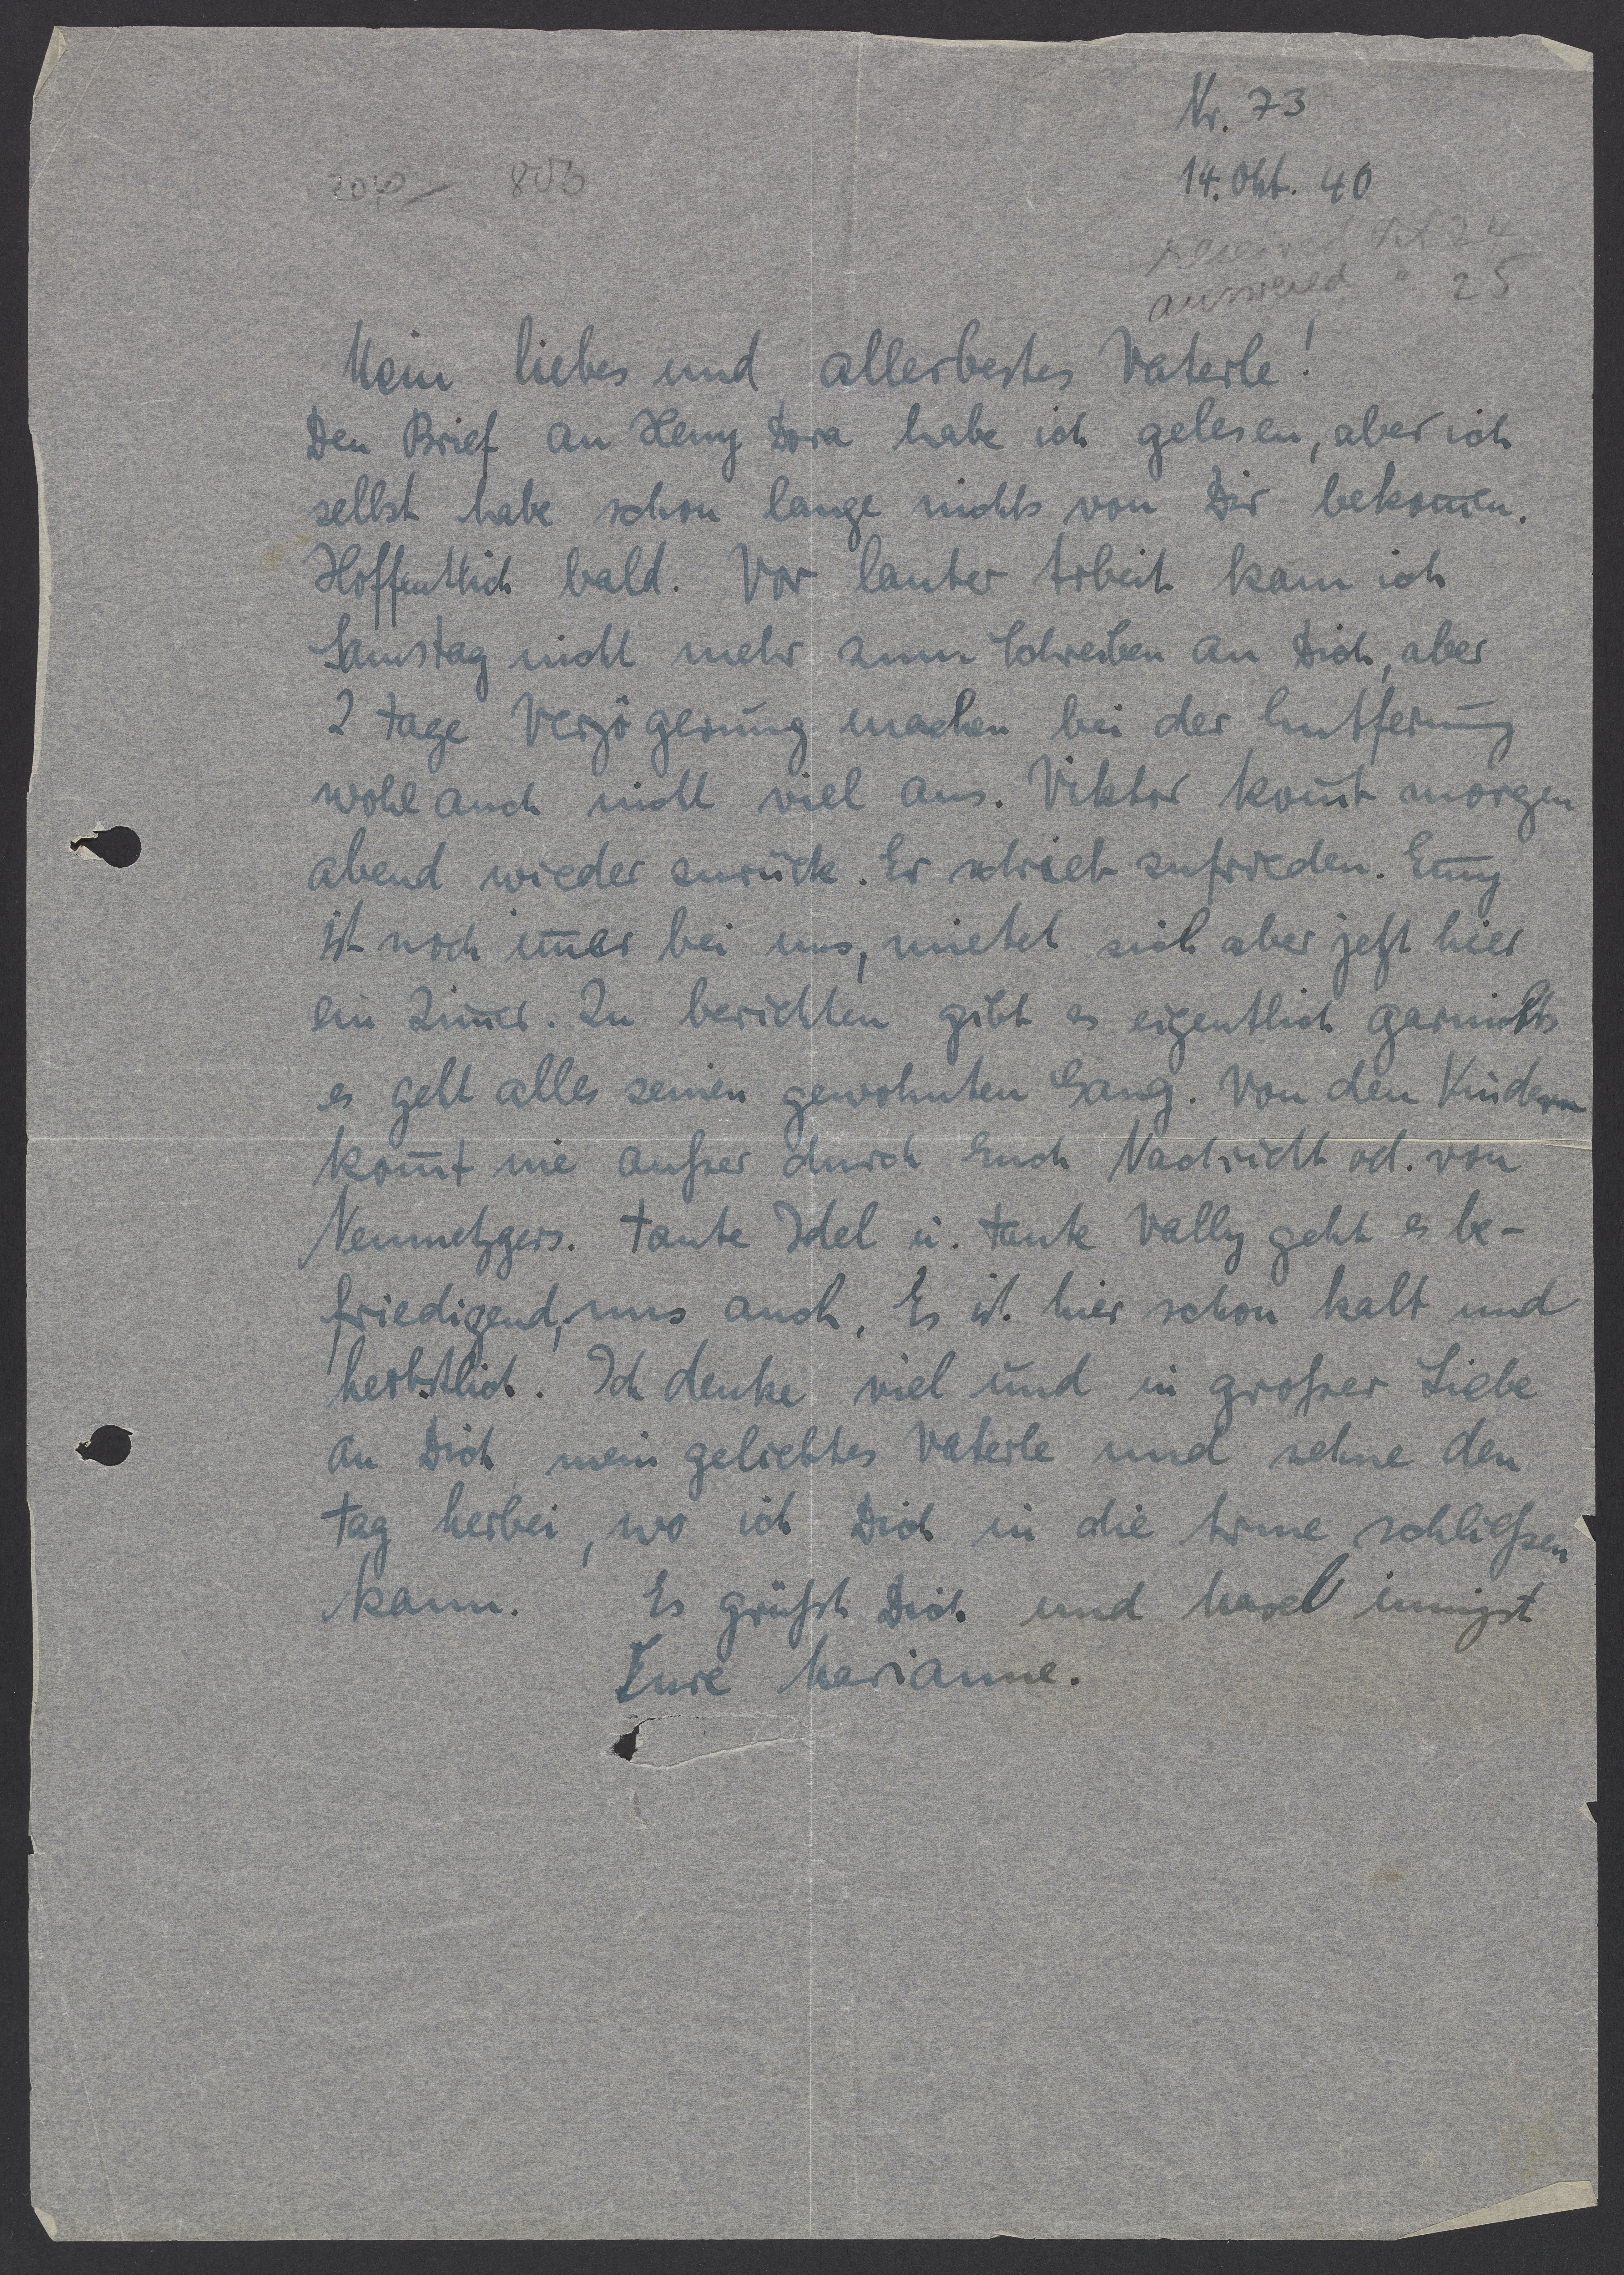 Nr. 73
14. Okt. 40
received Oct 24
answered " 25
Mein liebes und allerbestes Vaterle!
Den Brief an Heny Dora habe ich gelesen, aber ich
selbst habe schon lange nichts von Dir bekom̄en.
Hoffentlich bald. Vor lauter Arbeit kam ich
Samstag nicht mehr zum Schreiben an Dich, aber
2 Tage Verzögerung machen bei der Entfernung
wohl auch nicht viel aus. Viktor kom̄t morgen
abend wieder zurück. Er schrieb zufrieden. Em̄y
ist noch im̄er bei uns, mietet sich aber jetzt hier
ein Zim̄er. Zu berichten gibt es eigentlich garnichts
es geht alles seinen gewohnten Gang. Von den Kindern
kom̄t nie außer durch Euch Nachricht od. von
Nenmetzgers. Tante Idel u. Tante Vally geht es be-
friedigend, uns auch. Es ist hier schon kalt und
herbstlich. Ich denke viel und in großer Liebe
an Dich, mein geliebtes Vaterle und sehne den
Tag herbei, wo ich Dich in die Arme schließen
kann. Es grüßt Dich und innigst
Eure Marianne.